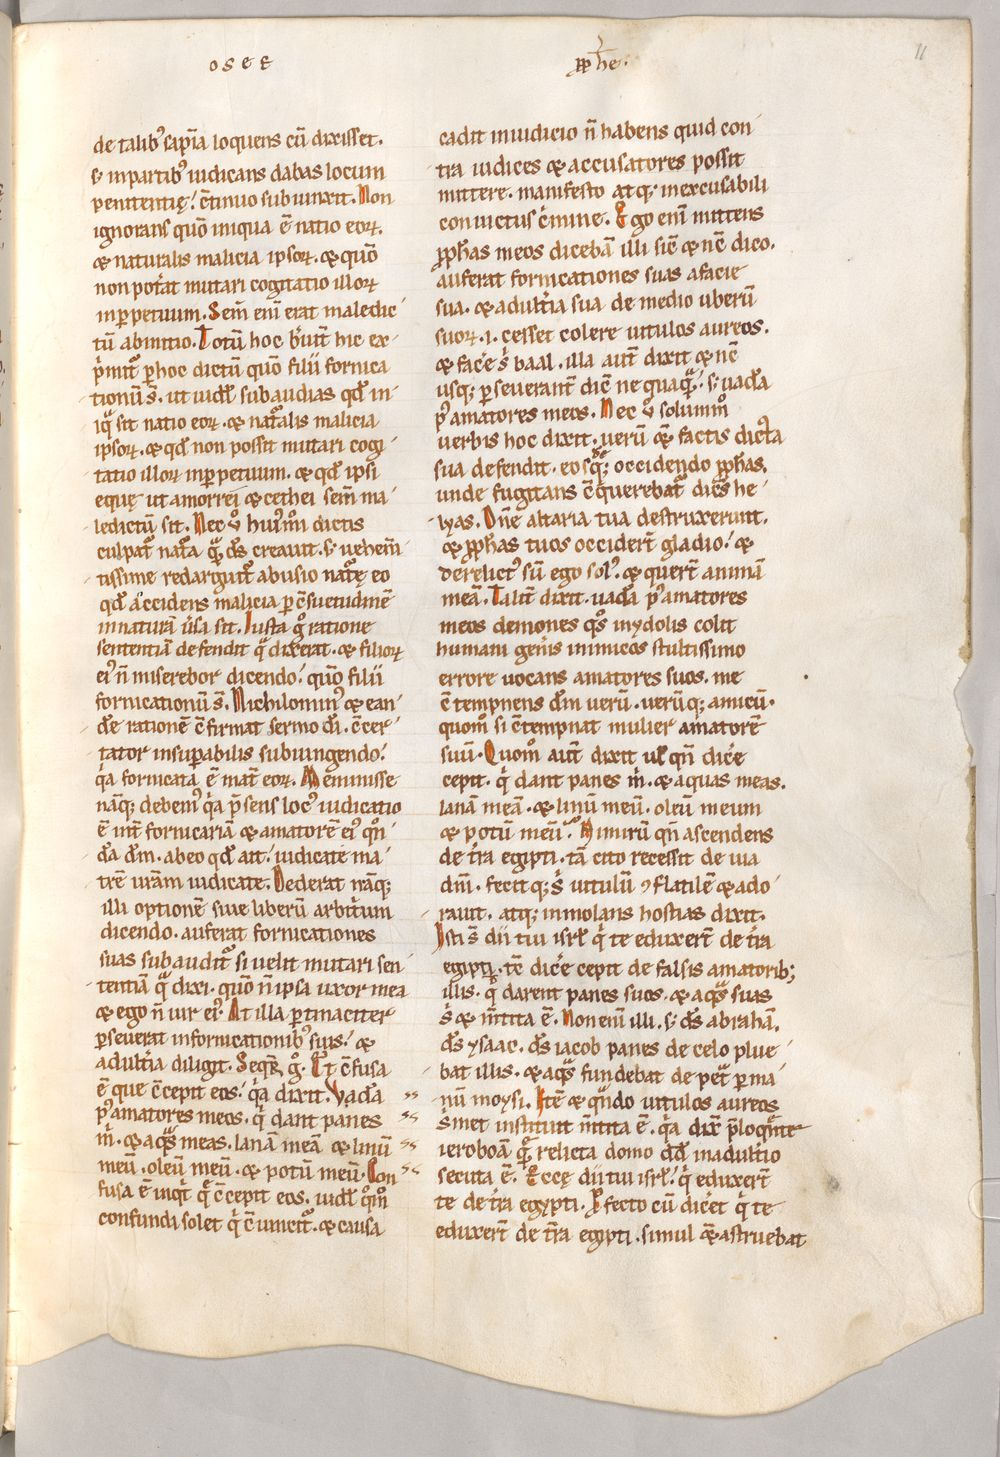 osee
pphe.
11
de talib᷒ sapīa loquens cū dixisset.
s; inpartib᷒ iudicans dabas locum
penitentię! c̄tinuo subiunxit. Non
ignorans quō iniqua ē natio eoꝝ.
⁊ naturalis malicia ipsoꝝ. ⁊ quō
non pot̄at mutari cogitatio illoꝝ
inp̱petuum. Sem̄ eni erat maledic
tū abinitio. Totū hoc b̓uit̄ hic ex
p̓mit᷑ p̱hoc dictū quō filii fornica
tionū s̄. ut uidel̄ subaudias qd̄ in
iq̄ sit natio eoꝝ. ⁊ nat̄alis malicia
ipsoꝝ. ⁊ qd̄ non possit mutari cogi
tatio illoꝝ inp̱petuum. ⁊ qd̄ ipsi
equę ut amorrei ⁊ cethei sem̄ ma
ledictū sit. Nec ṽ hui᷒m̊ dictis
culpat᷑ nat̄a q̄ ds̄ creauit. s; uehem̄
tissime redarguit᷑ abusio nat̄ę eo
qd̄ accidens malicia p̱ c̄suetudinē
innaturā ūsa sit. Iusta g̊ ratione
sententiā defendit q̄ dixerat. ⁊ filioꝝ
ei᷒ n̄ miserebor dicendo! quō filii
fornicationū s̄. Nichilomin᷒ ⁊ ean
dē rationē c̄firmat sermo dī. c̄cer
tator insup̱abilis subiungendo!
q̓a fornicata ē mat̄ eoꝝ. Meminisse
nāq; debem᷒ q̓a p̄sens loc᷒ iudicatio
ē int̄ fornicariā ⁊ amatorē ei᷒ q̄n
dā dm̄. abeo qd̄ ait! iudicate ma
trē urām iudicate. Dederat nāq;
illi optionē siue liberū arbit̓um
dicendo. auferat fornicationes
suas subaudit᷑ si uelit mutari sen
tentiā q̄ dixi. quō n̄ ipsa uxor mea
⁊ ego n̄ uir ei᷒. At illa p̱tinaciter
p̱seuerat infornicationib᷒ suis! ⁊
adult̓ia diligit. Seqr̄ g̊. Et c̄fusa
ē que c̄cepit eos! q̓a dixit. Vadā
p᷒ amatores meos. q̓ dant panes
m̓. ⁊ aq̄s meas. lanā meā ⁊ linū
meū. oleū meū. ⁊ potū meū. Con
fusa ē inq̓t q̄ c̄cepit eos. uidel̄ q̊m̊
confundi solet q̓ c̄uincit᷑. ⁊ causa
cadit iniudicio n̄ habens quid con
tra iudices ⁊ accusatores possit
mittere. manifesto atq; inexcusabili
conuictus c̓mine. Ego enī mittens
pp̄has meos dicebā illi siē ⁊ nē dico.
auferat fornicationes suas afacie
sua. ⁊ adult̓ia sua de medio uberū
suoꝝ .i. cesset colere uitulos aureos.
⁊ facēe s̓ baal. illa aut̄ dixit ⁊ nē
usq; p̱seuerant̄ diē nequaq̄! s; uadā
p᷒ amatores meos. Nec ṽ solumm̊
uerbis hoc dixit. uerū ⁊ factis dicta
sua defendit. eosq; occidendo pp̄has.
unde fugitans c̄querebat᷑ diēs he
lyas. Dn̄e altaria tua destruxerunt.
⁊ pp̄has tuos occidert̄ gladio! ⁊
derelict᷒ sū ego sol᷒. ⁊ quert̄ animā
meā. Talit̄ dixit. uadā p᷒ amatores
meos demones q̊s inydolis colit
humani geñis inimicos stultissimo
errore uocans amatores suos. me
c̄tempnens dm̄ uerū. uerūq; amicū.
quom̊ si c̄tempnat mulier amatorē
suū. Quom̊ aut̄ dixit ul̄ qn̄ dic̄e
cepit. q̓ dant panes m̓. ⁊ aquas meas.
lanā meā. ⁊ linū meū. oleū meum
⁊ potū meū? Nimirū qn̄ ascendens
de t̄ra egipti. tā cito recessit de uia
dm̄. fecitq; s̓ uitulū ꝯflatilē ⁊ ado
rauit. atq; inmolans hostias dixit.
Isti s̄ dii tui isrl̄ q̓ te eduxert̄ de t̄ra
egipti. tc̄ dic̄e cepit de falsis amatorib;
illis. q̓ darent panes suos. ⁊ aq̄s suas
s̓ ⁊ m̄tita ē. Non enī illi. s; ds̄ abrahā.
ds̄ ysaac. ds̄ iacob panes de celo plue
bat illis. ⁊ aq̄s fundebat de pet̄ p̱ ma
nū moysi. Itē ⁊ qn̄do uitulos aureos
s̓met instituit m̄tita ē. q̓a dix̄ p̄loq̄nte
ieroboā q̄ relicta domo dd̄ inadult̓io
secuta ē. Eccę dii tui isrl̄! q̓ eduxert̄
te de t̄ra egypti. P̱fecto cū dic̄et q̓ te
eduxert̄ de t̄ra egipti. simul ⁊ astruebat